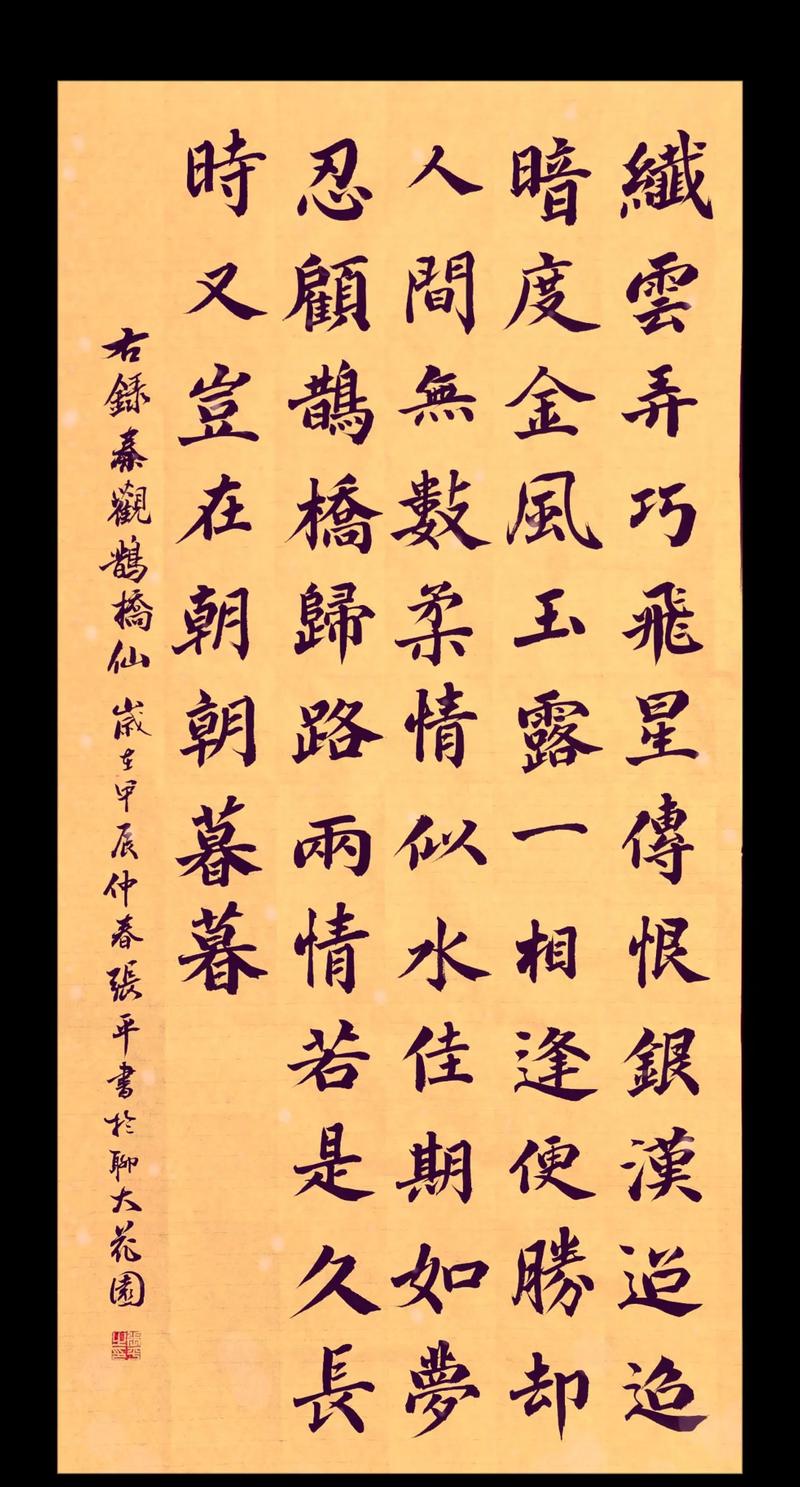 纖雲弄巧飛星傳恨銀漢迢迢
暗度金風玉露一相逢便勝却
人間無數柔情似水佳期如夢
忍顧鵲橋歸路兩情若是久長
時又豈在朝朝暮暮
右録秦觀鵲橋仙 歲在甲辰仲春張平書於聊大花園